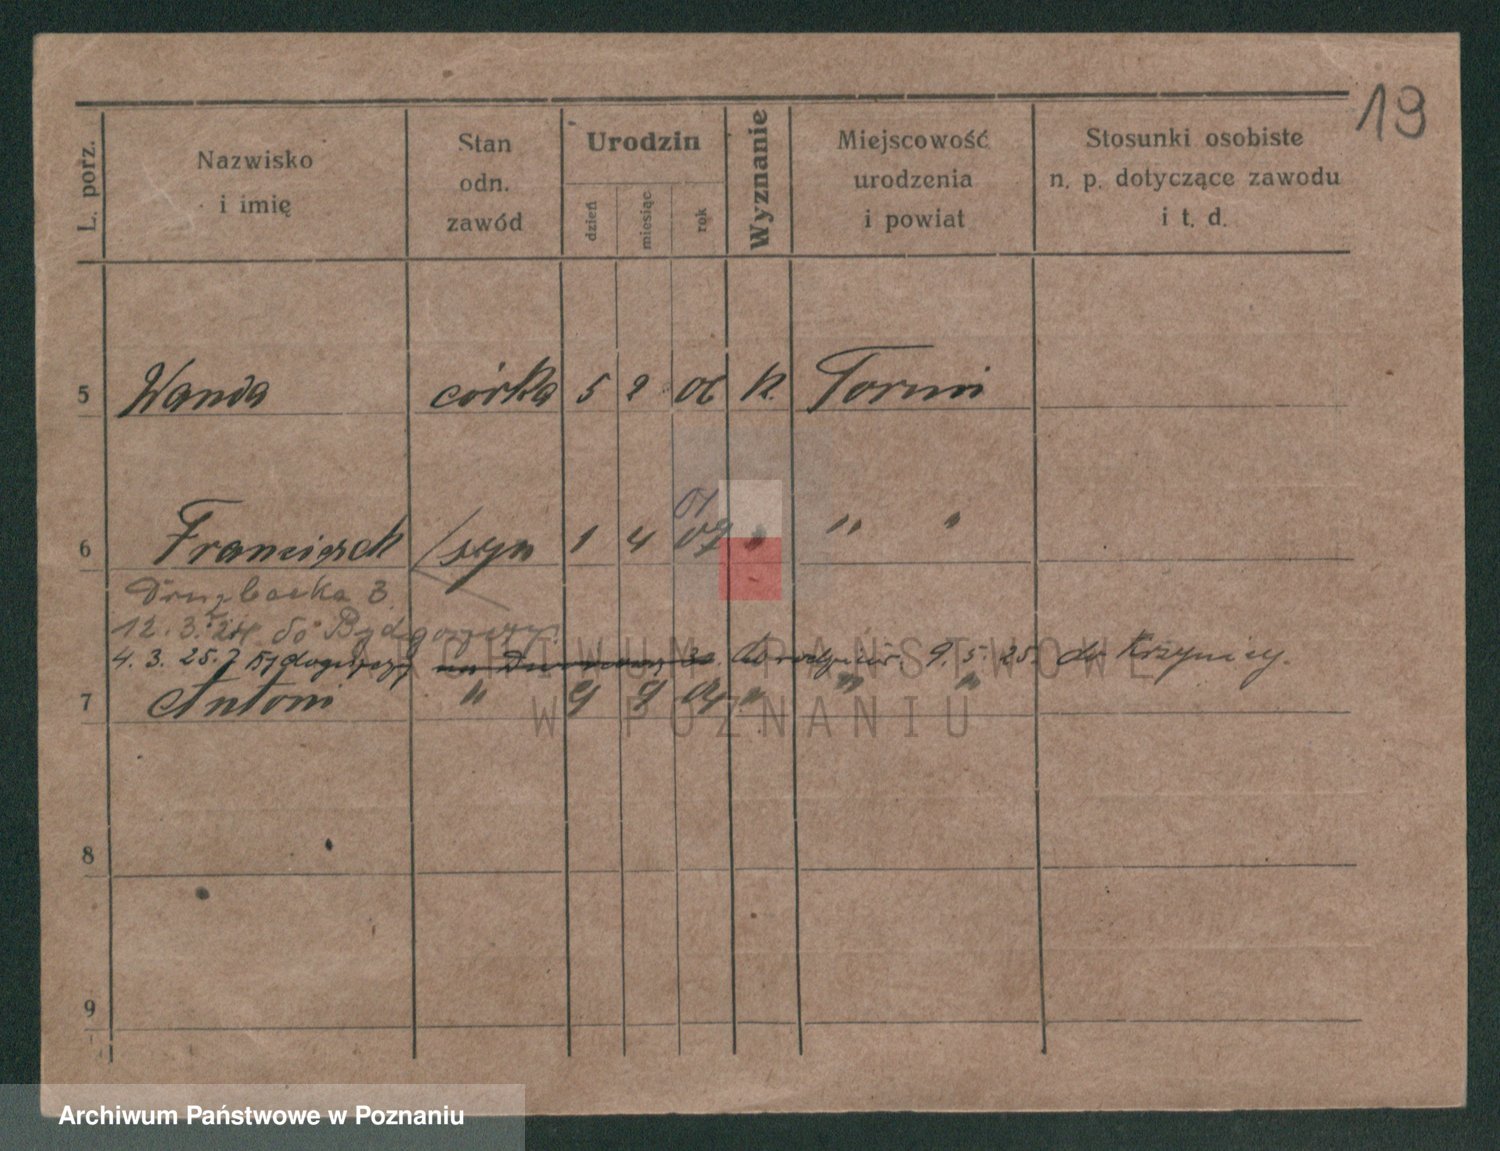 19
L. porz.
Nazwisko
i imię
Stan
odn.
zawód
Urodzin
dzień
miesiąc
rok
Wyznanie
Miejscowość
urodzenia
i powiat
Stosunki osobiste
n. p. dotyczące zawodu
i t. d.
5 Wanda córka 5 2 06 k. Toruń
01
6 Franciszek syn 1 4 07 " " "
Drużbacka 3.
12.3.24 do Bydgoszczy
4.3.25. z Bydgoszczy do rodziców. 9.5.25. do Krzynicy.
7 Antoni " 9 9 09 " " "
8
9
ARCHIWUM PAŃSTWOWE
W POZNANIU
Archiwum Państwowe w Poznaniu